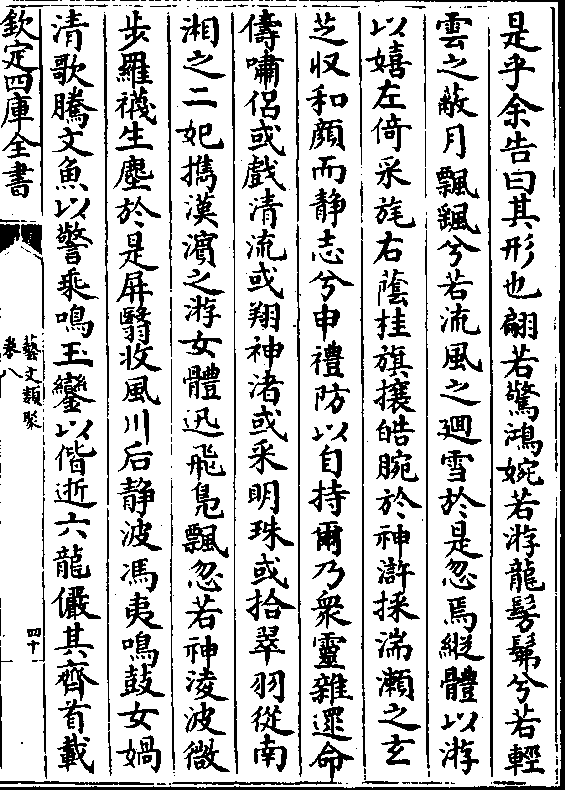 是乎余告曰其形也翩若驚鴻婉若游龍髣髴兮若輕
雲之蔽月飄颻兮若流風之迴雪於是忽焉縱體以游
以嬉左倚采旄右蔭桂旗攘皓腕於神滸採湍瀨之玄
芝収和顔而静志兮申禮防以自持爾乃衆靈雜遝命
儔嘯侣或戲清流或翔神渚或采明珠或拾翠羽從南
湘之二妃攜漢濵之游女體迅飛鳬飄忽若神淩波微
步羅襪生塵於是屏翳收風川后静波馮夷鳴鼓女媧
清歌騰文魚以警乘鳴玉鑾以偕逝六龍儼其齊首載
欽定四庫全書
藝文類聚
卷八
四十